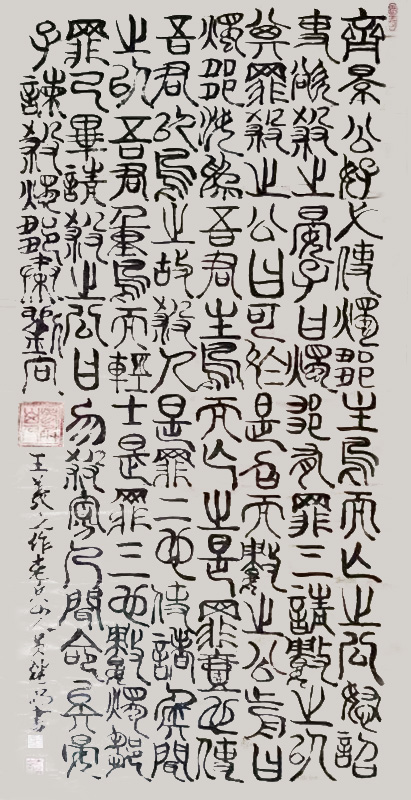 齊景公好弋使燭鄒主鳥而亡之公怒詔
吏欲殺之晏子曰燭鄒有罪三請數之以
其罪殺之公曰可於是召而數之公前曰
燭鄒汝為吾君主鳥而亡之是罪壹也使
吾君以鳥之故殺人是罪二也使諸侯聞
之以吾君重鳥而輕士是罪三也數燭鄒
罪已畢請殺之公曰勿殺寡人聞命矣晏
子諫殺燭鄒劉向